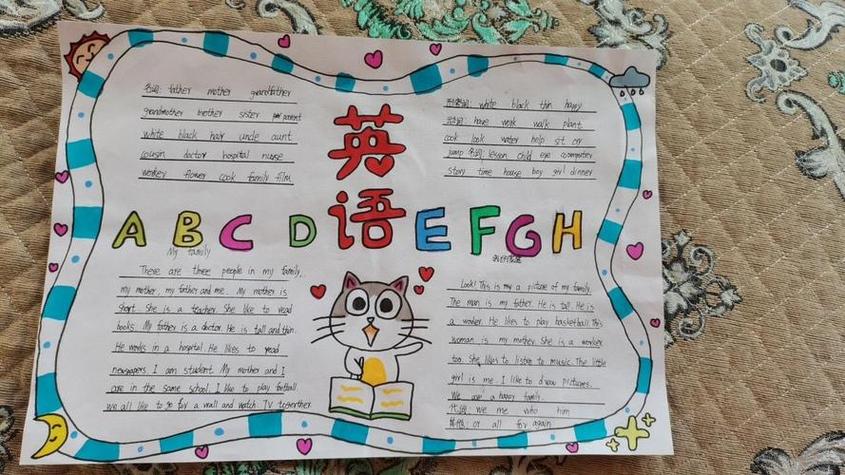 名词: father mother grandfather
grandmother brother sister parent
white black hair uncle aunt
cousin doctor hospital nurse
worker flower cook family film
英语
形容词: white black thin happy
动词: have weak walk plant
cook look water help sit or
jump 名词: lesson child eye computer
story time house boy girl dinner
A B C D E F G H
My family
There are three people in my family,
my mother, my father and me. My mother is
short. She is a teacher. She like to read
books. My father is a doctor. He is tall and thin.
He works in a hospital. He likes to read
newspapers. I am student. My mother and I
are in the same school. I like to play football.
we all like to go for a wall and watch TV togerther.
我的家庭
Look! This is my a picture of my family.
The man is my father. He is tall. He is
a worker. He likes to play basketball. This
woman is my mother. She is a worker
too. She likes to listen to music. The little
girl is me. I like to draw pictures.
We are a happy family.
代词: we me who him
or all for again